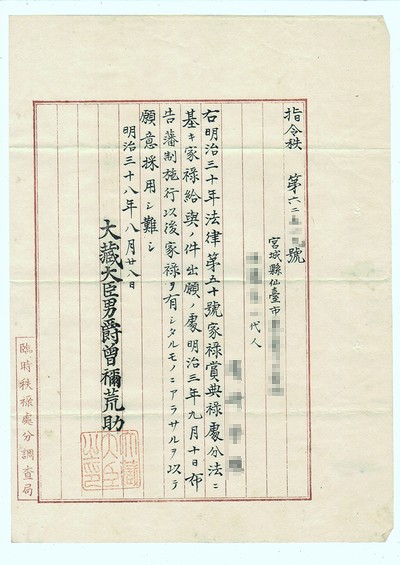 指令秩 第六二 號
宮城縣仙臺市
代人
右明治三十年法律第五十號家祿賞典祿處分法ニ
基キ家祿給與ノ件出願ノ處明治三年九月十日布
告藩制施行以後家祿ヲ有シタルモノニアラサルヲ以テ
願意採用シ難シ
明治三十八年八月廿八日
大藏大臣男爵曾禰荒助
大藏大臣之印
臨時秩祿處分調查局